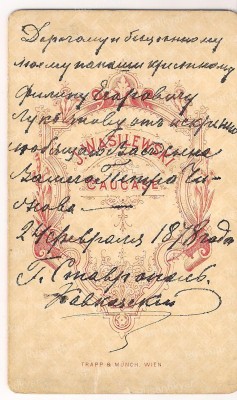 Дорогому и безценному
моему папаши крестному
Филипу Егоровичу
отъ искренно
любящаго Васъ сына
Вашего Петра
24 февраля 1878 года
Г. Ставрополь.
Кавказский
J. WASILEWSKI
CAUCASE
TRAPP & MÜNCH, WIEN